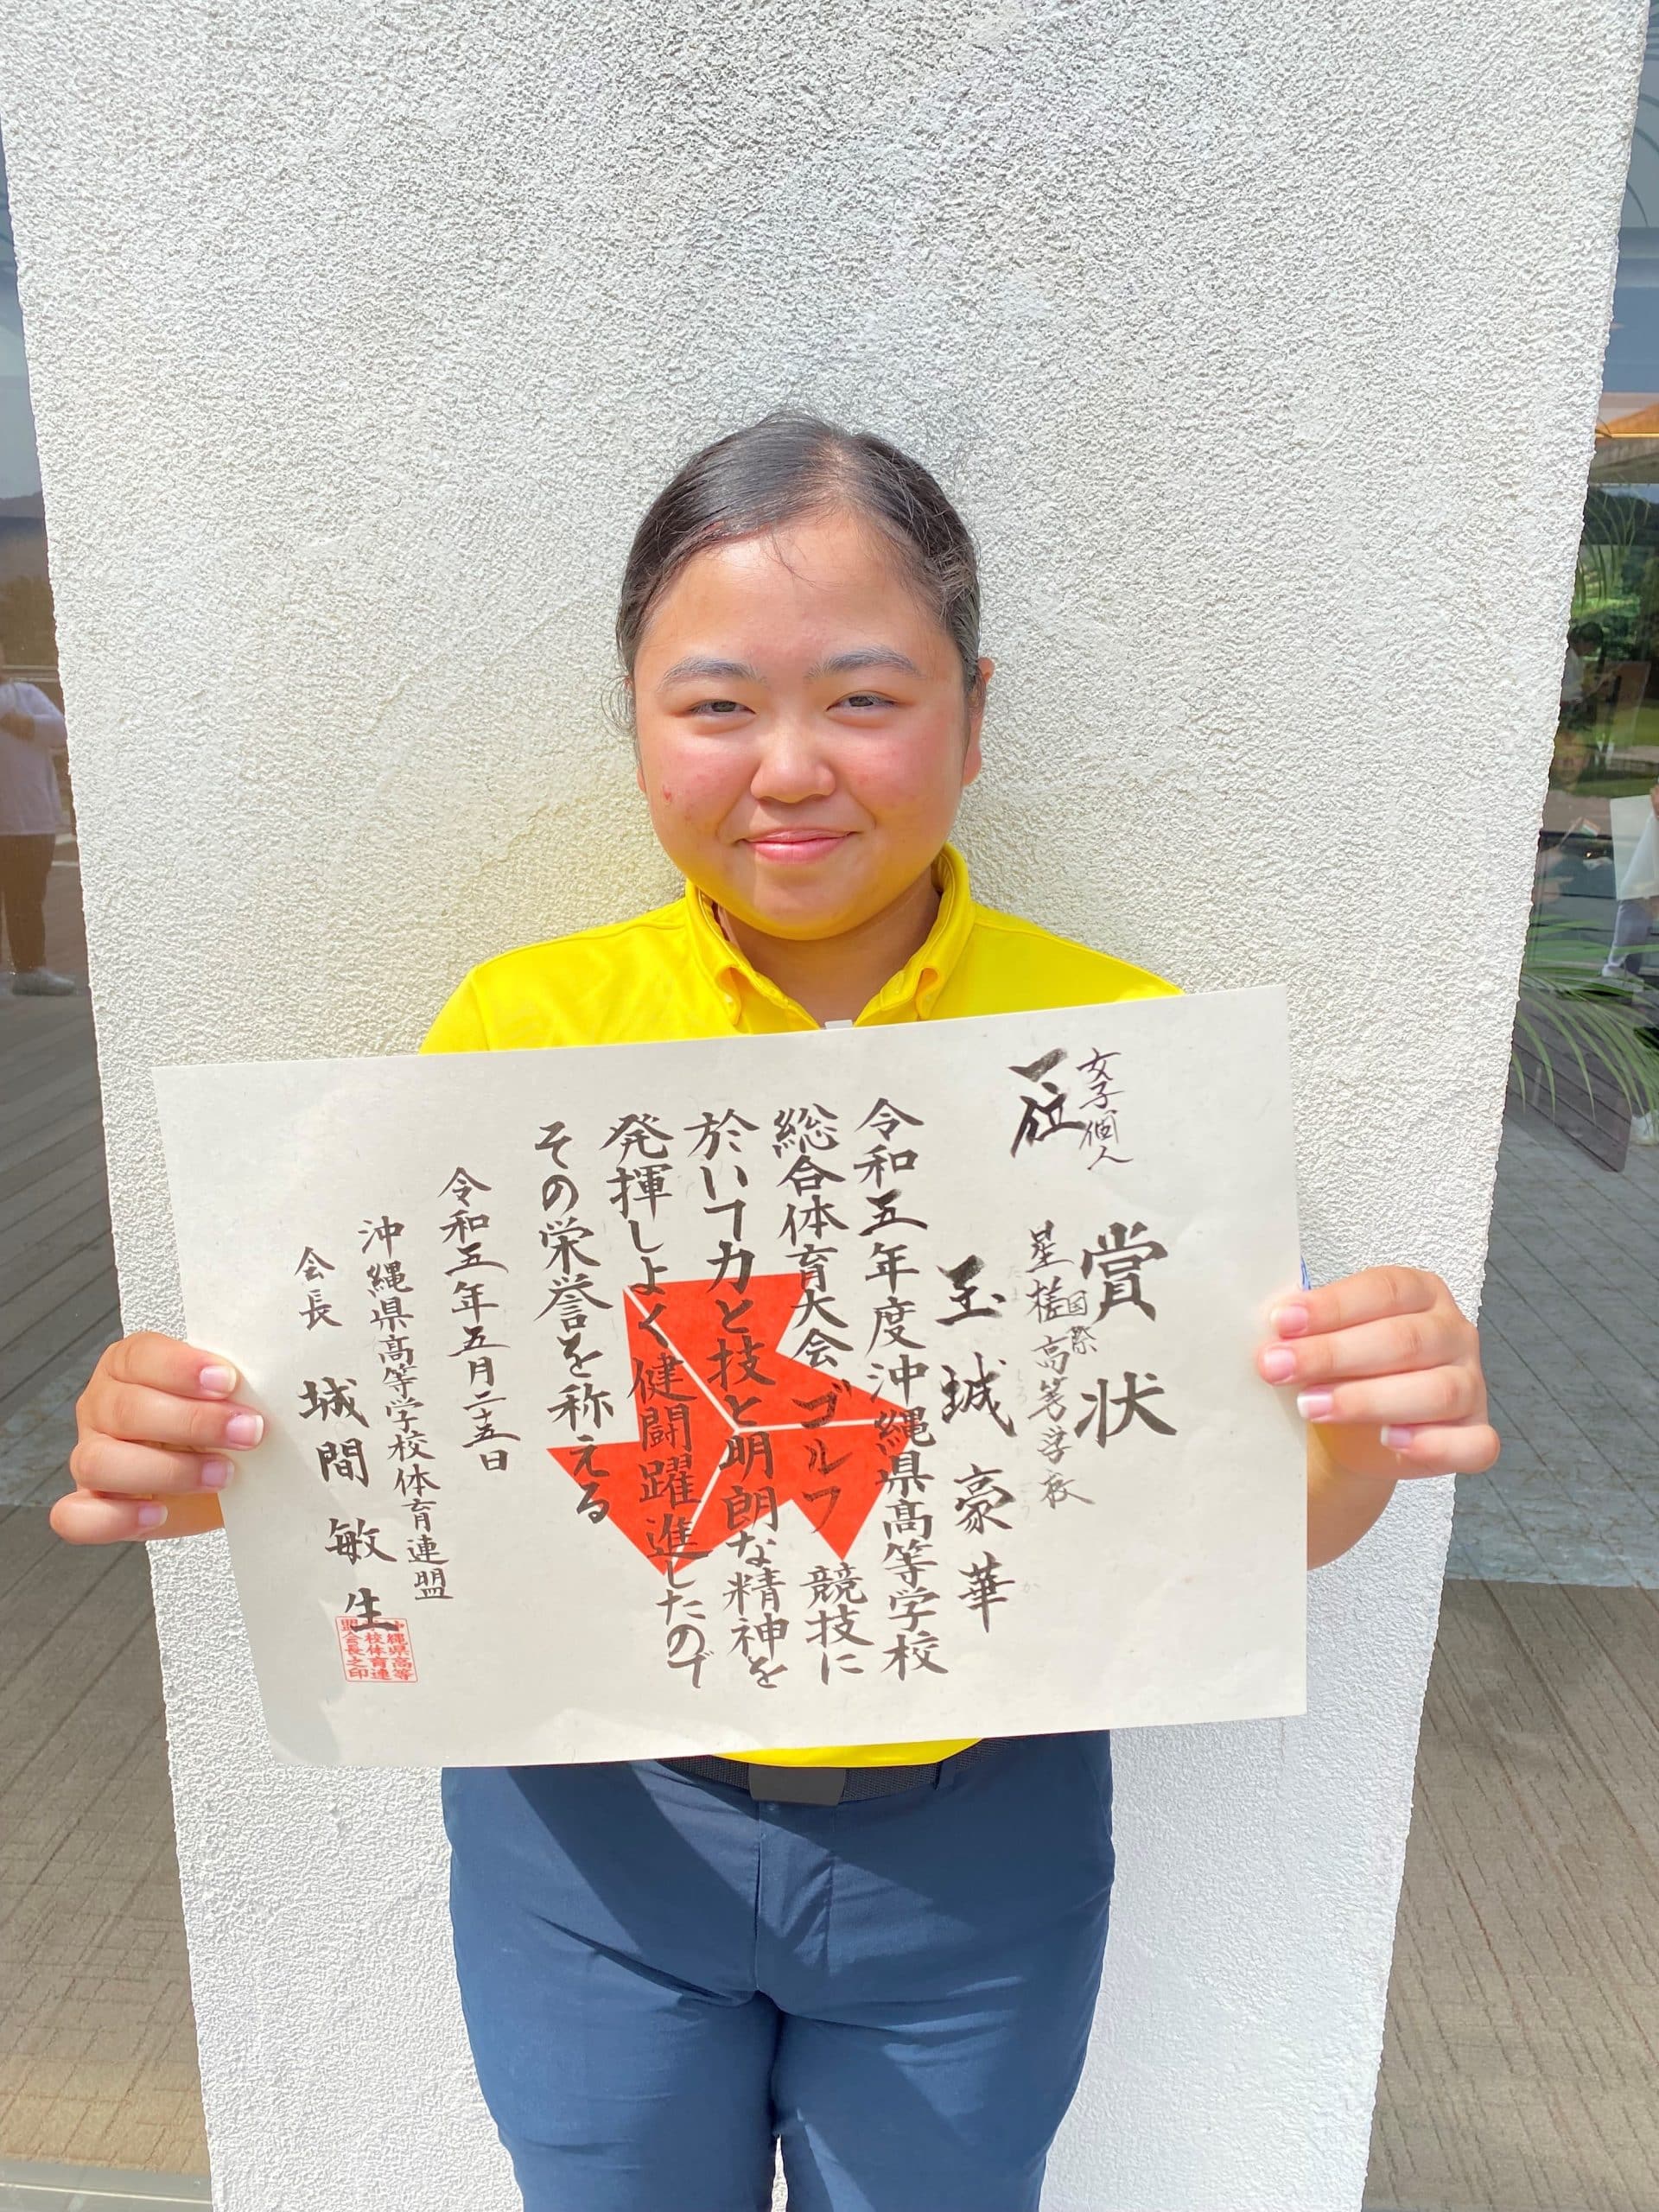 賞状
女子個人
一位
星槎国際高等学校
玉城豪華
たましろごうか
令和五年度沖縄県高等学校
総合体育大会ゴルフ競技に
於いて力と技と明朗な精神を
発揮しよく健闘躍進したので
その栄誉を称える
令和五年五月二十五日
沖縄県高等学校体育連盟
会長 城間敏生
沖縄県高等
学校体育連
盟会長之印